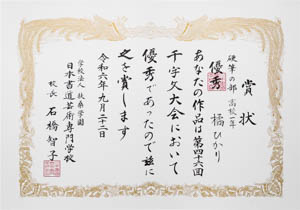 賞状
硬筆の部 高校一年
優秀 橘ひかり
あなたの作品は第四十六回
千字文大会において
優秀であったので茲に
之を賞します
令和六年九月二十二日
学校法人 扶桑学園
日本書道芸術専門学校
校長 石橋智子